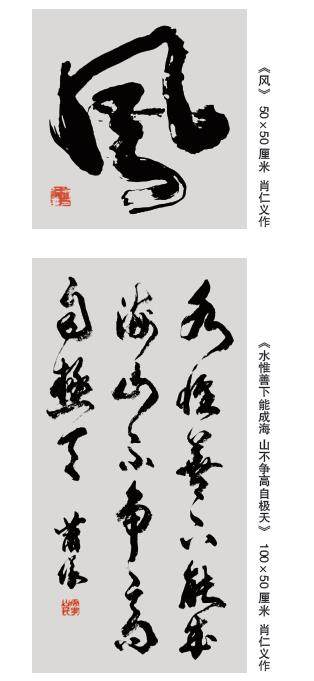 《风》 50×50厘米 肖仁义作
風
《水惟善下能成海 山不争高自极天》 100×50厘米 肖仁义作
水惟善下能成
海山不争高
自極天